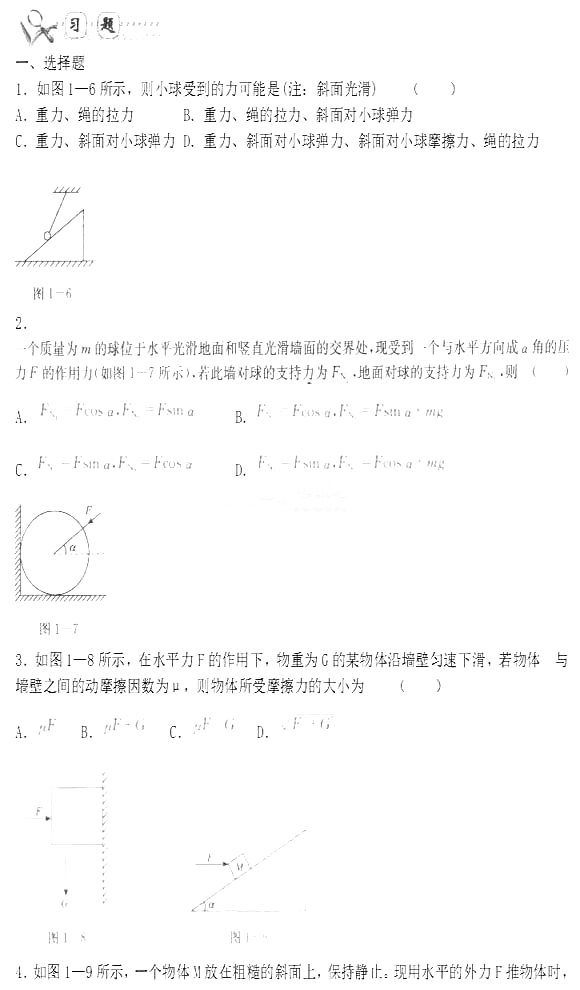 习 题
一、选择题
1. 如图1—6所示, 则小球受到的力可能是(注: 斜面光滑) ( )
A. 重力、绳的拉力 B. 重力、绳的拉力、斜面对小球弹力
C. 重力、斜面对小球弹力 D. 重力、斜面对小球弹力、斜面对小球摩擦力、绳的拉力
图1-6
2.
一个质量为m的球位于水平光滑地面和竖直光滑墙面的交界处,现受到一个与水平方向成α角的压
力F的作用力(如图1-7所示),若此墙对球的支持力为F_N,地面对球的支持力为F_N,则 ( )
A. F_N=Fcosα,F_N=Fsinα B. F_N=Fcosα,F_N=Fsinα+mg
C. F_N=Fsinα,F_N=Fcosα D. F_N=Fsinα,F_N=Fcosα+mg
F
α
图1-7
3. 如图1—8所示, 在水平力F的作用下, 物重为G的某物体沿墙壁匀速下滑, 若物体 与
墙壁之间的动摩擦因数为μ, 则物体所受摩擦力的大小为 ( )
A. μF B. μF+G C. μF G D.
F
G
F M
α
图1-8 图1-9
4. 如图1—9所示, 一个物体M放在粗糙的斜面上, 保持静止。现用水平的外力F推物体时,